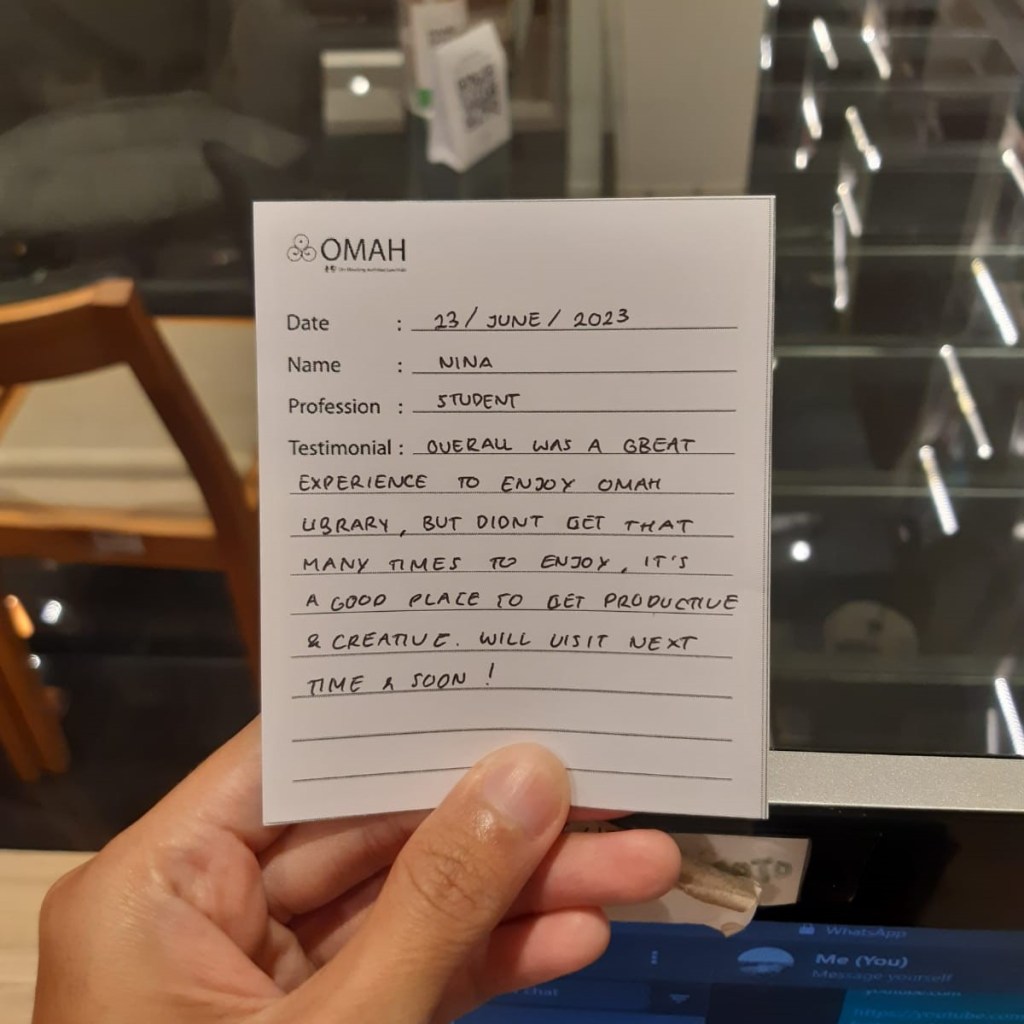 OMAH
Date : 23 / JUNE / 2023
Name : NINA
Profession : STUDENT
Testimonial : OVERALL WAS A GREAT
EXPERIENCE TO ENJOY OMAH
LIBRARY, BUT DIDNT GET THAT
MANY TIMES TO ENJOY, IT'S
A GOOD PLACE TO GET PRODUCTIVE
& CREATIVE. WILL VISIT NEXT
TIME & SOON !
WhatsApp
Me (You)
Message yourself
chat